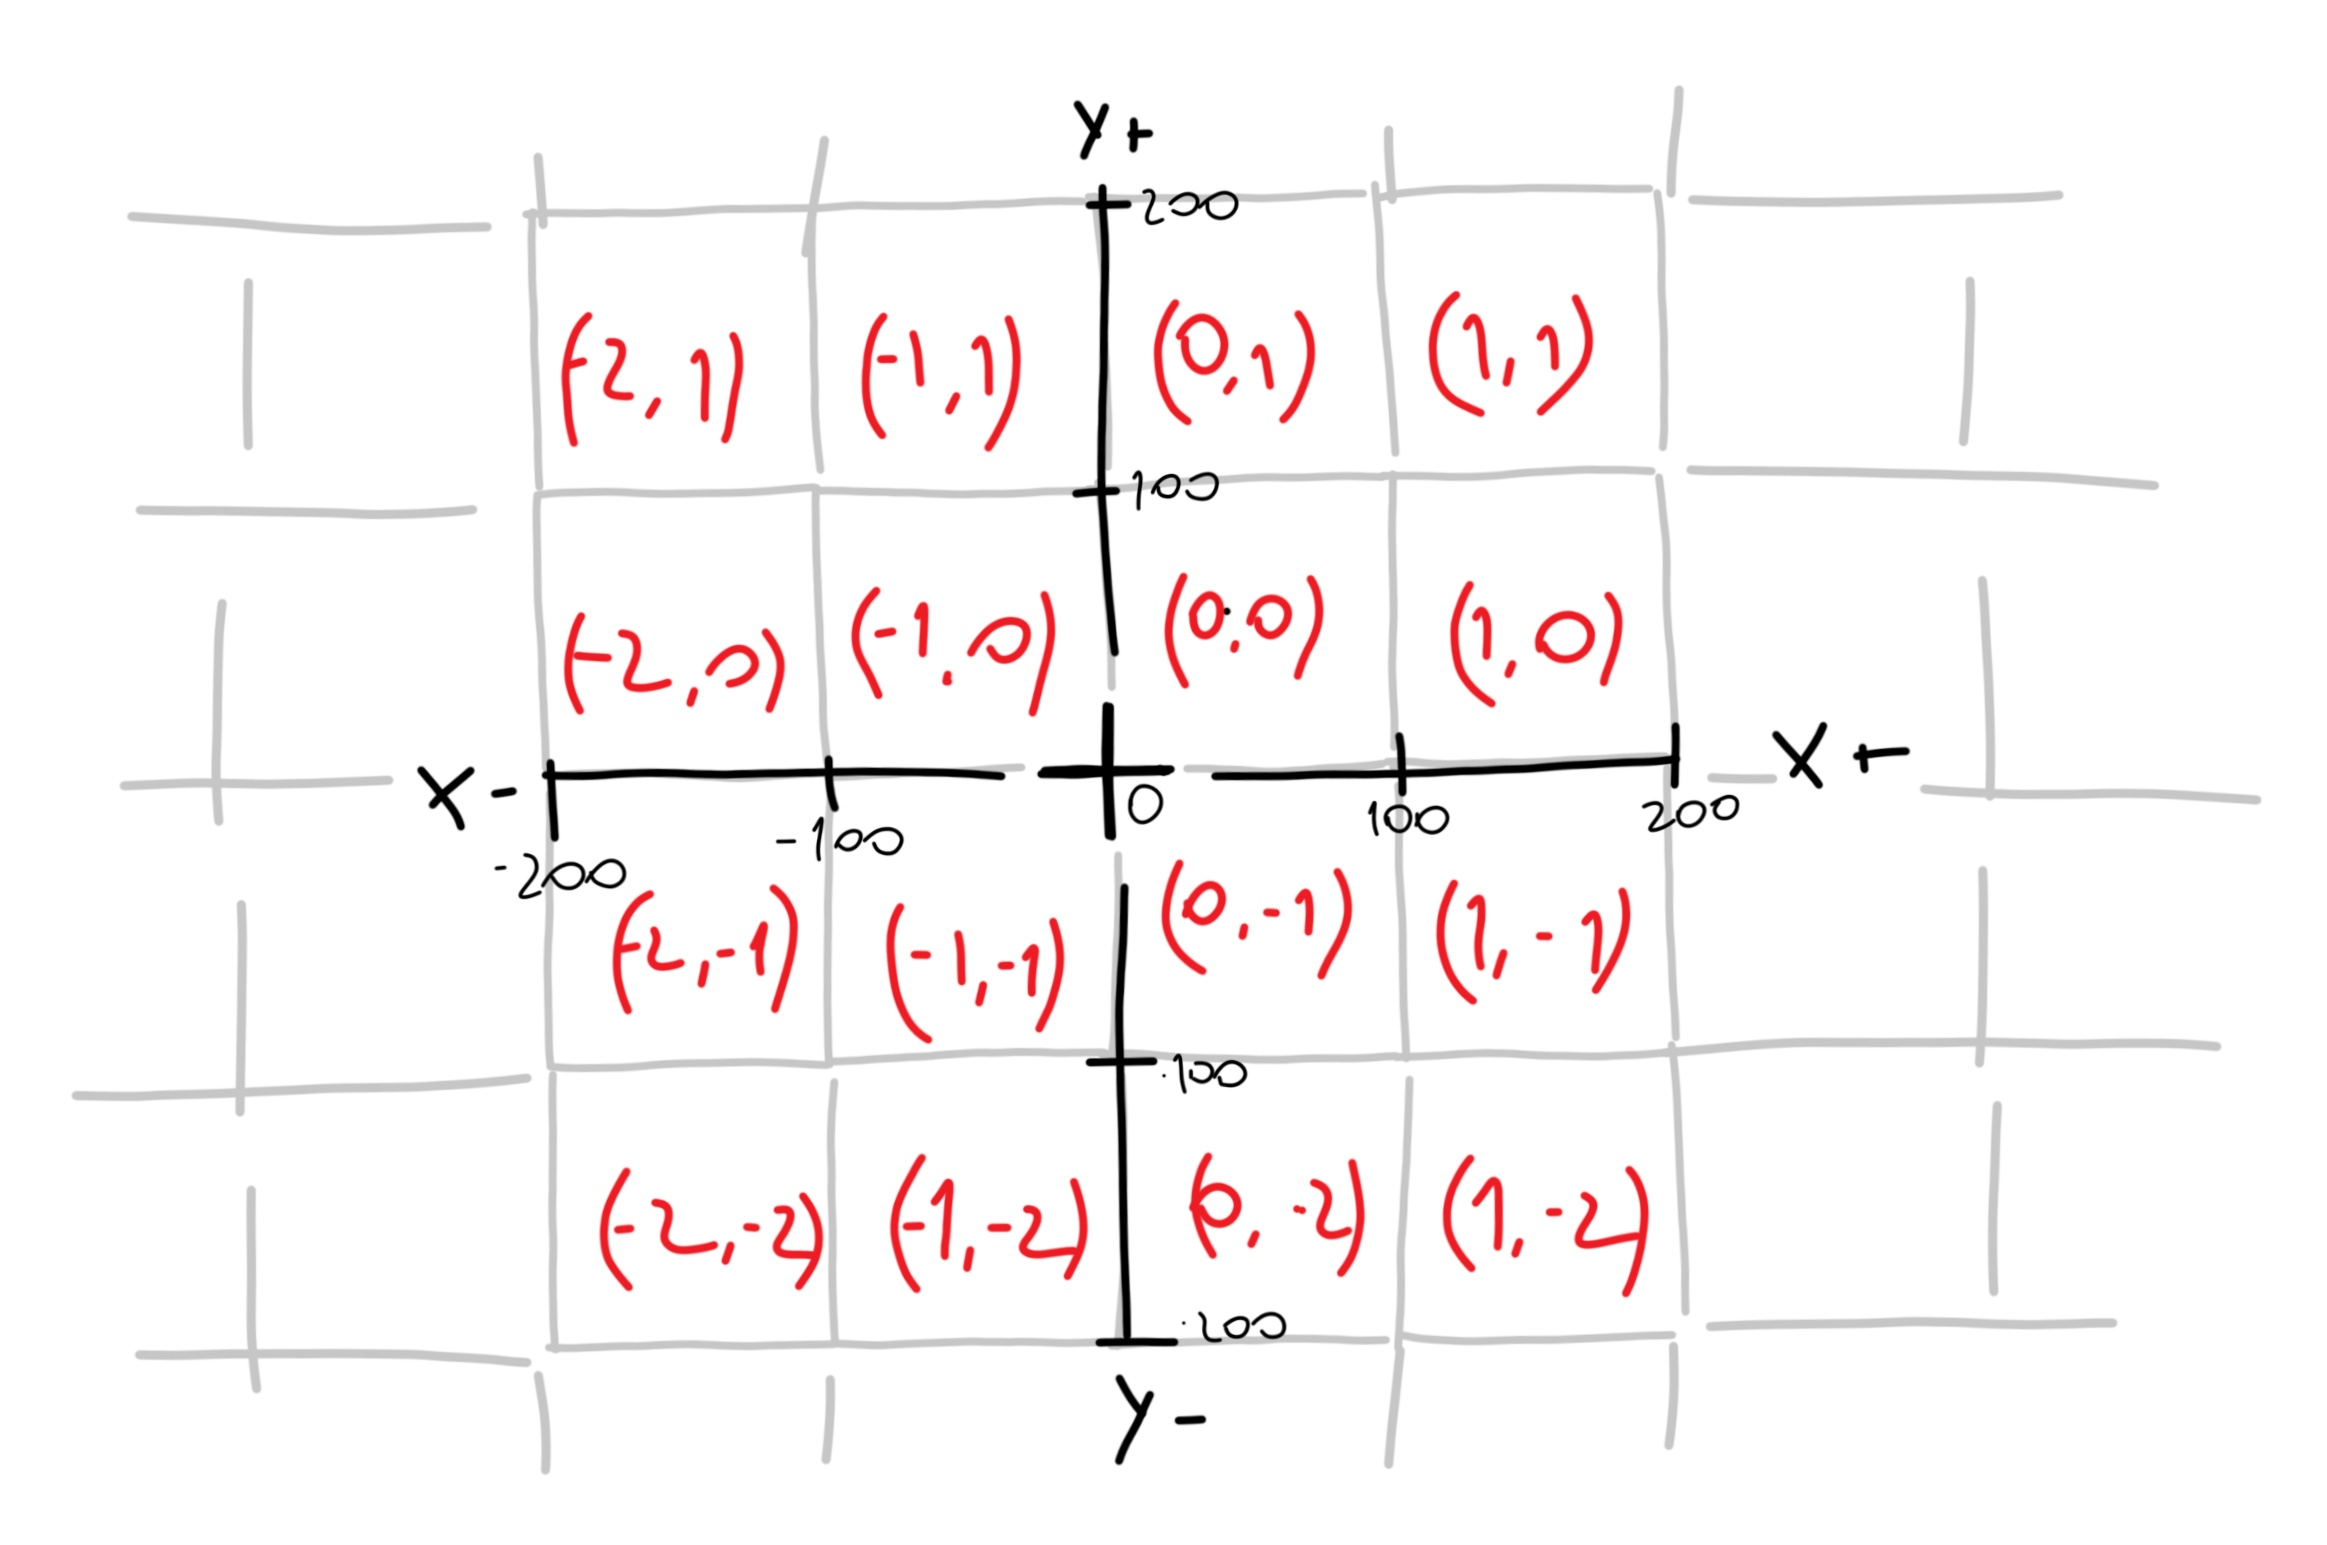 Y+
200
(-2, 1) (-1, 1) (0, 1) (1, 1)
100
(-2, 0) (-1, 0) (0, 0) (1, 0)
X- X+
0 100 200
-200 -100
(-2, -1) (-1, -1) (0, -1) (1, -1)
-100
(-2, -2) (-1, -2) (0, -2) (1, -2)
-200
Y-